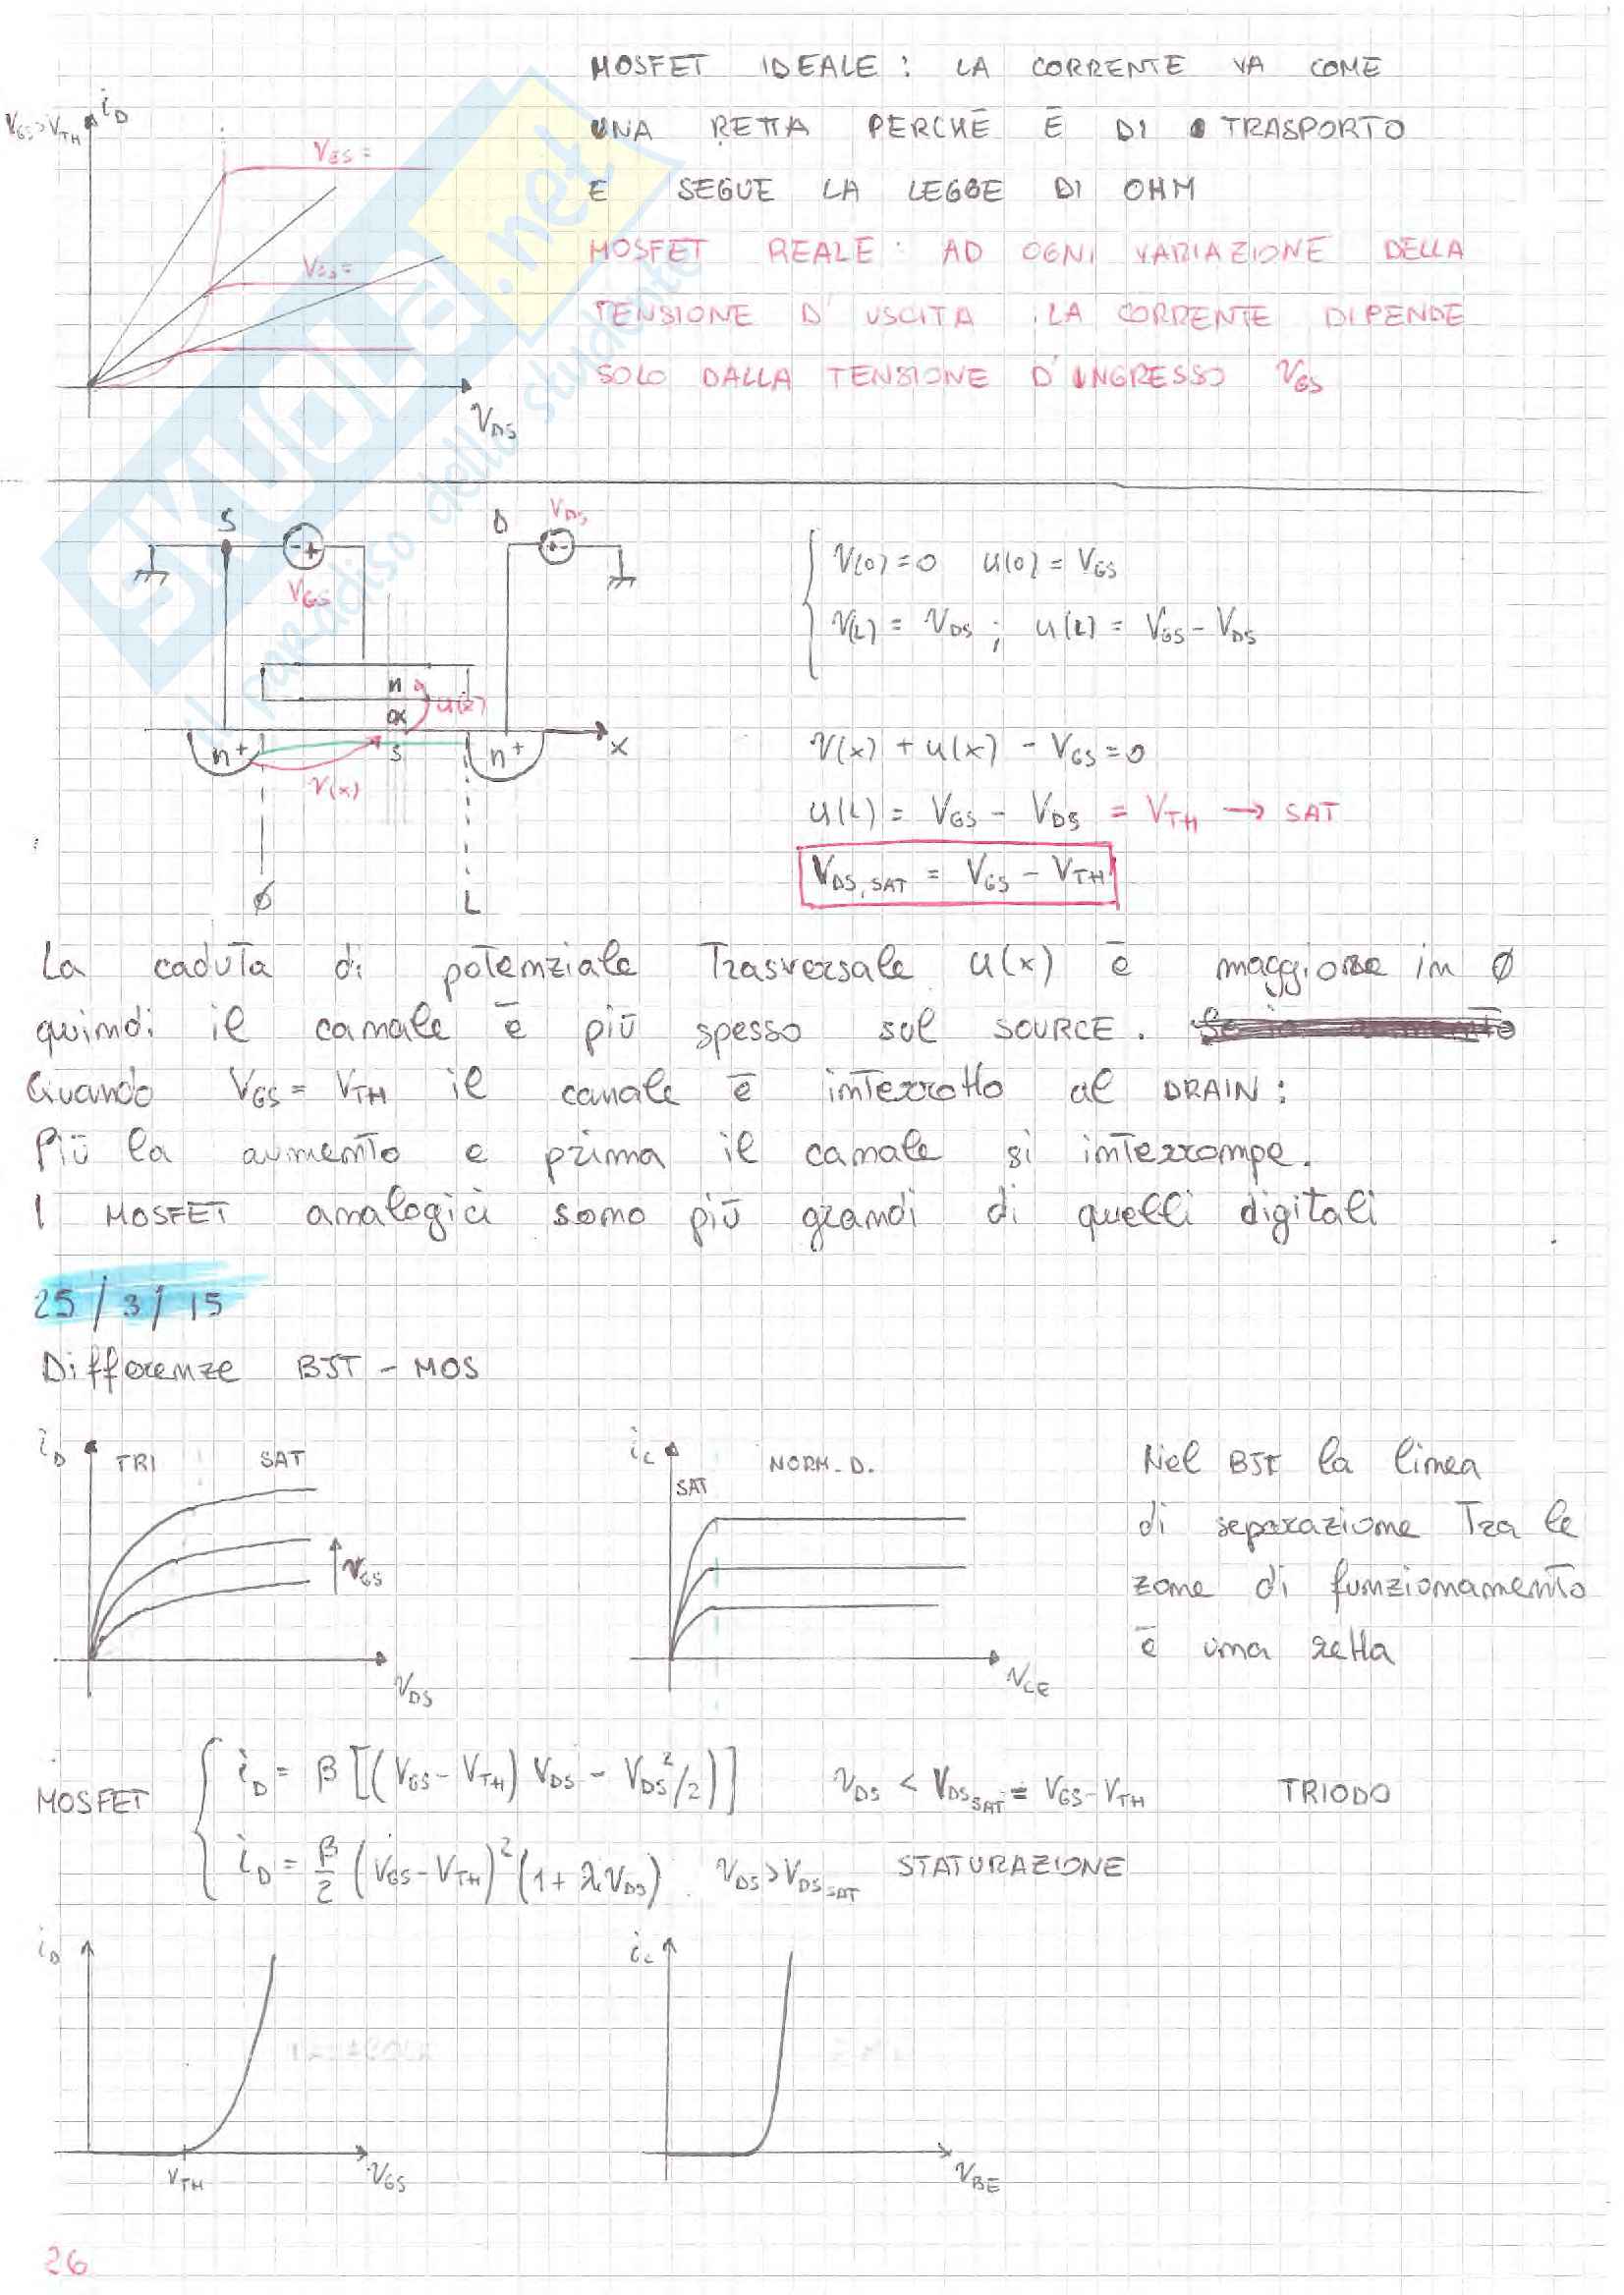 MOSFET IDEALE : LA CORRENTE VA COME
UNA RETTA PERCHÉ È DI TRASPORTO
E SEGUE LA LEGGE DI OHM
MOSFET REALE : AD OGNI VARIAZIONE DELLA
TENSIONE D'USCITA LA CORRENTE DIPENDE
SOLO DALLA TENSIONE D'INGRESSO VGS
VGS>VTH iD
VGS =
VGS =
VDS
SKUOLA.net
il paradiso dello studente
S D VDS
- + + -
VGS
n
ox u(x)
n+ s n+ x
V(x)
∅ L
V(0)=0 u(0)=VGS
V(L) = VDS ; u(L) = VGS - VDS
V(x) + u(x) - VGS = 0
u(L) = VGS - VDS = VTH → SAT
VDS,SAT = VGS - VTH
La caduta di potenziale trasversale u(x) è maggiore in ∅
quindi il canale è più spesso sul SOURCE.
Quando VGS = VTH il canale è interrotto al DRAIN :
Più la aumento e prima il canale si interrompe.
I MOSFET analogici sono più grandi di quelli digitali
25/3/15
Differenze BJT - MOS
iD TRI SAT
VGS
VDS
iC SAT NORM. D.
VCE
Nel BJT la linea
di separazione tra le
zone di funzionamento
è una retta
MOSFET
iD = β [(VGS - VTH) VDS - VDS²/2)] VDS < VDSSAT = VGS - VTH TRIODO
iD = β/2 (VGS - VTH)² (1 + λVDS) VDS > VDSSAT STATURAZIONE
iD
VTH VGS
iC
VBE
26